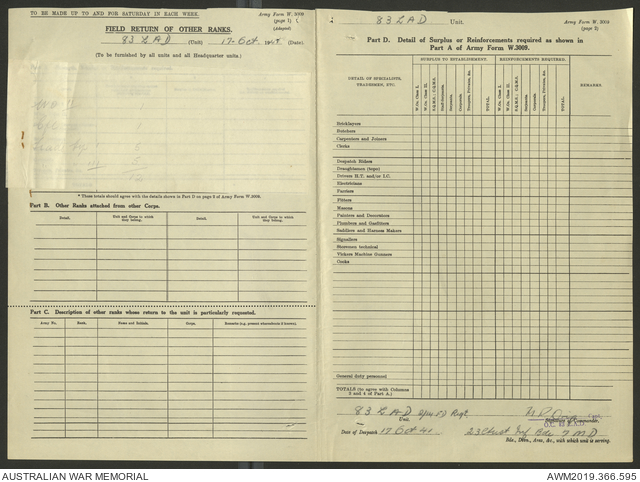 TO BE MADE UP TO AND FOR SATURDAY IN EACH WEEK.
Army Form W. 3009
(page 1)
(Adapted)
FIELD RETURN OF OTHER RANKS.
83 L A D (Unit) 17-Oct. (Date).
(To be furnished by all units and all Headquarter units.)
* These totals should agree with the details shown in Part D on page 2 of Army Form W.3009.
Part B. Other Ranks attached from other Corps.
Detail.
Unit and Corps to which they belong.
Detail.
Unit and Corps to which they belong.
Part C. Description of other ranks whose return to the unit is particularly requested.
Army No.
Rank.
Name and Initials.
Corps.
Remarks (e.g. present whereabouts if known).
83 LAD Unit.
Army Form W. 3009
(page 2)
Part D. Detail of Surplus or Reinforcements required as shown in
Part A of Army Form W.3009.
DETAIL OF SPECIALISTS, TRADESMEN, ETC.
SURPLUS TO ESTABLISHMENT.
REINFORCEMENTS REQUIRED.
REMARKS
W.Os. Class I.
W.Os. Class II.
Staff Sergeants.
Sergeants.
Corporals.
TOTAL.
W.Os. Class I.
W.Os. Class II.
Sergeants.
Corporals.
TOTAL.
Bricklayers
Butchers
Carpenters and Joiners
Clerks
Despatch Riders
Draughtsmen (topo)
Drivers H.T. and/or I.C.
Electricians
Farriers
Fitters
Masons
Painters and Decorators
Plumbers and Gasfitters
Saddlers and Harness Makers
Signallers
Storemen technical
Vickers Machine Gunners
Cooks
General duty personnel
TOTALS (to agree with Columns
2 and 4 of Part A.)
83 L A D Regt
Unit.
Signature of Commander.
Date of Despatch 17 Oct 41 23 Inf Bde 7 M D
Bde., Divn., Area, &c., with which unit is serving.
AUSTRALIAN WAR MEMORIAL
AWM2019.366.595